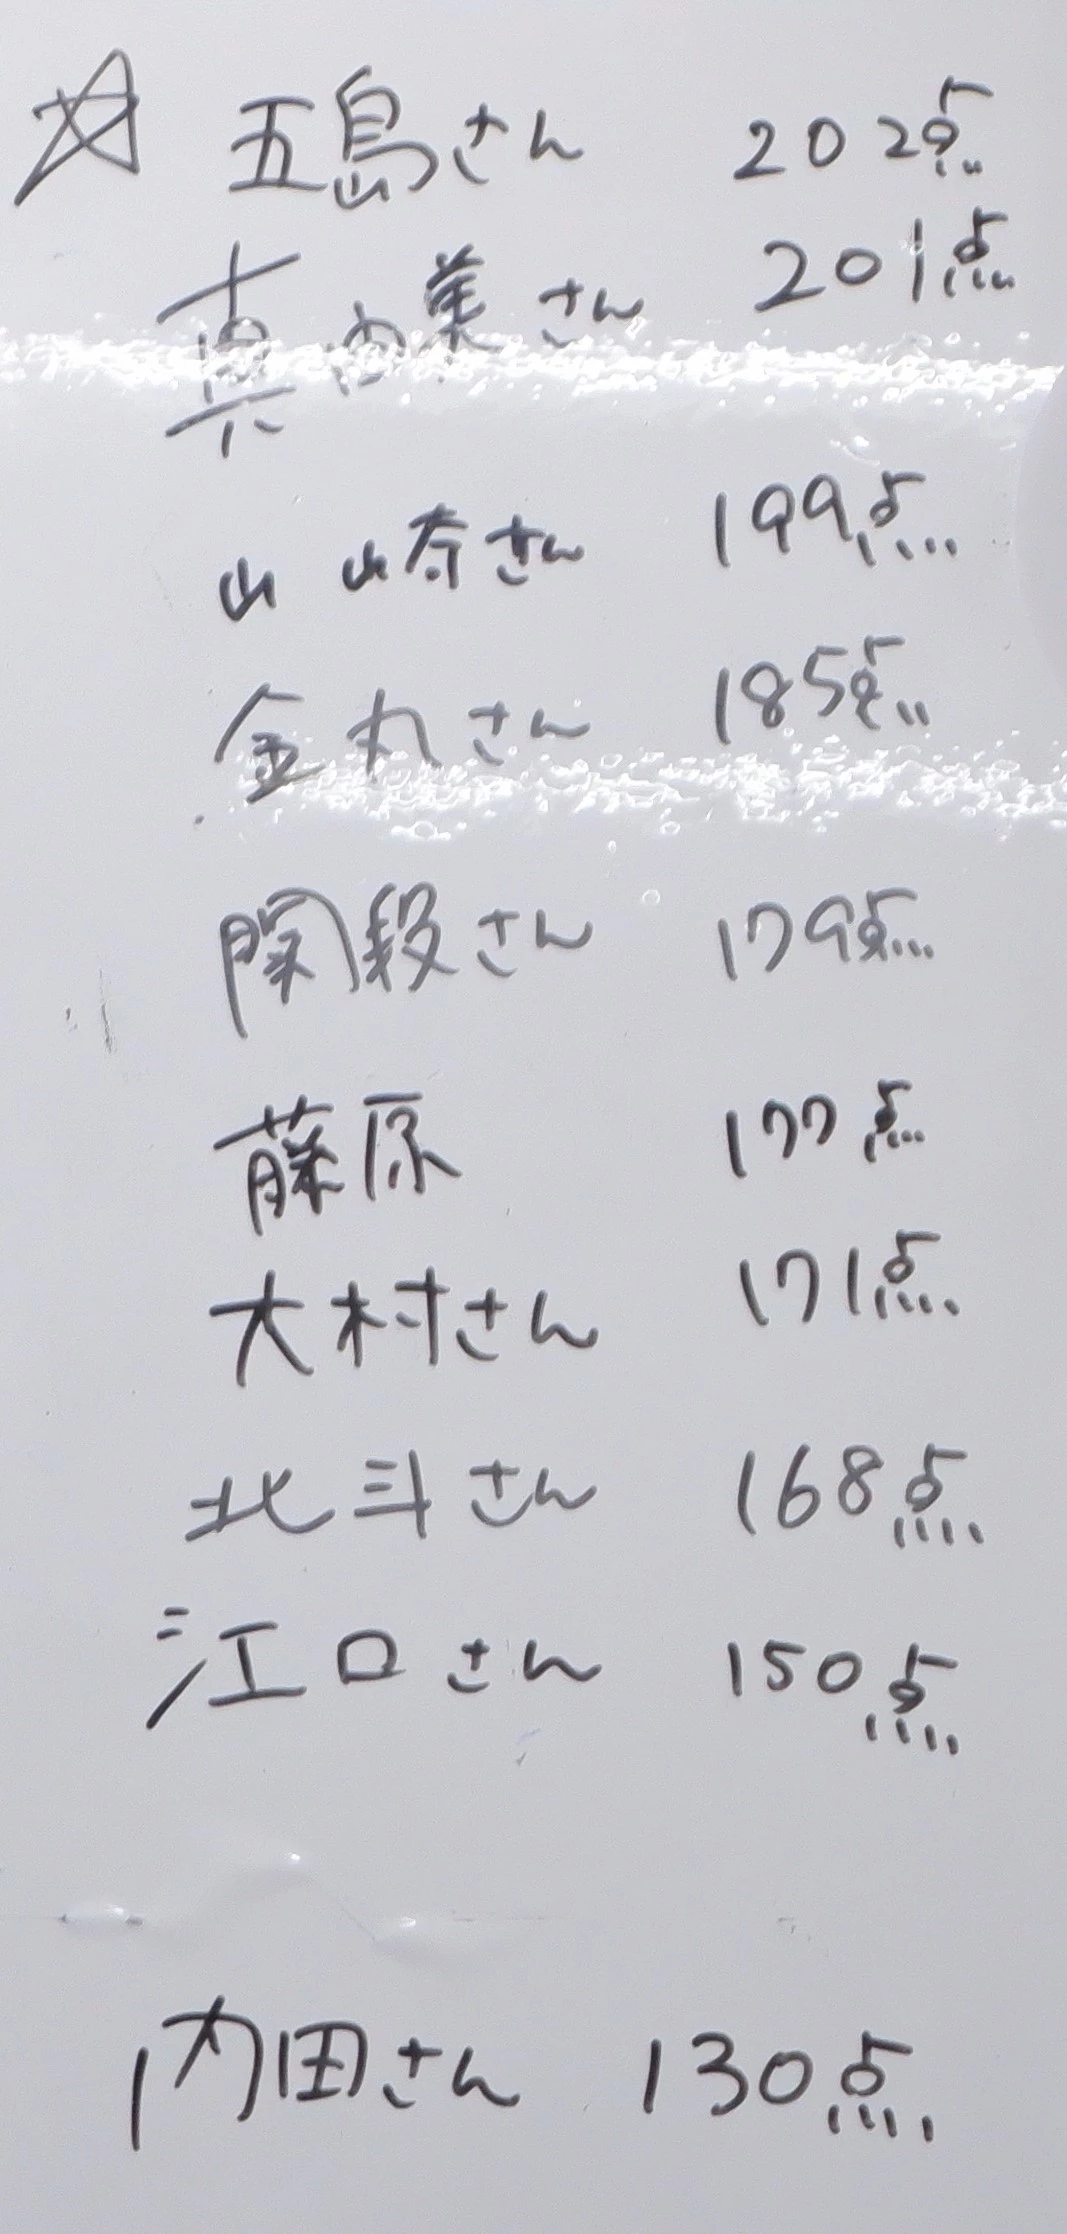 ☆ 五島さん 202点
真由美さん 201点
山崎さん 199点
金丸さん 185点
関段さん 179点
藤原 177点
大村さん 171点
北斗さん 168点
江口さん 150点
内田さん 130点